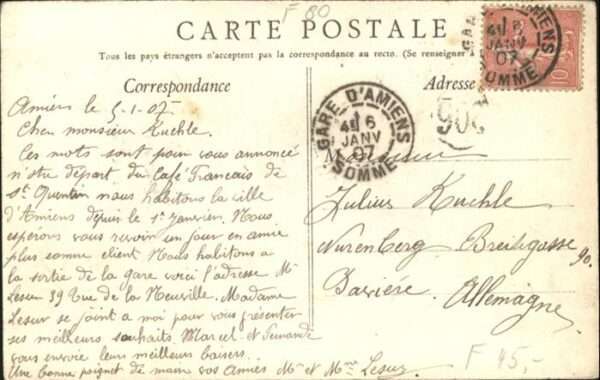 F 80
CARTE POSTALE
Tous les pays étrangers n'acceptent pas la correspondance au recto. (Se renseigner à
Correspondance
Adresse
Amiens le 5-1-07
Cher monsieur Kuchle.
Ces mots sont pour vous annoncé
notre départ du Café Francais de
St Quentin nous habitons la ville
d'Amiens depuis le 1er Janvier. Nous
espérons vous revoir un jour en amie
plus comme client Nous habitons a
la sortie de la gare voici l'adresse Mr
Lesur 39 Rue de la Neuville. Madame
Lesur se joint a moi pour vous présenter
ses meilleurs souhaits, Marcel et Fernande
vous envoie leurs meilleurs baisers..
Une bonne poignet de main vos Amies Mr et Mme Lesur
GARE D'AMIENS
4E 6
JANV
07
SOMME
D'AMIENS
6
JANV
07
SOMME
10
Monsieur
Julius Kuchle
Nurenberg Breitgasse 90.
Bavière
Allemagne
F 45,-